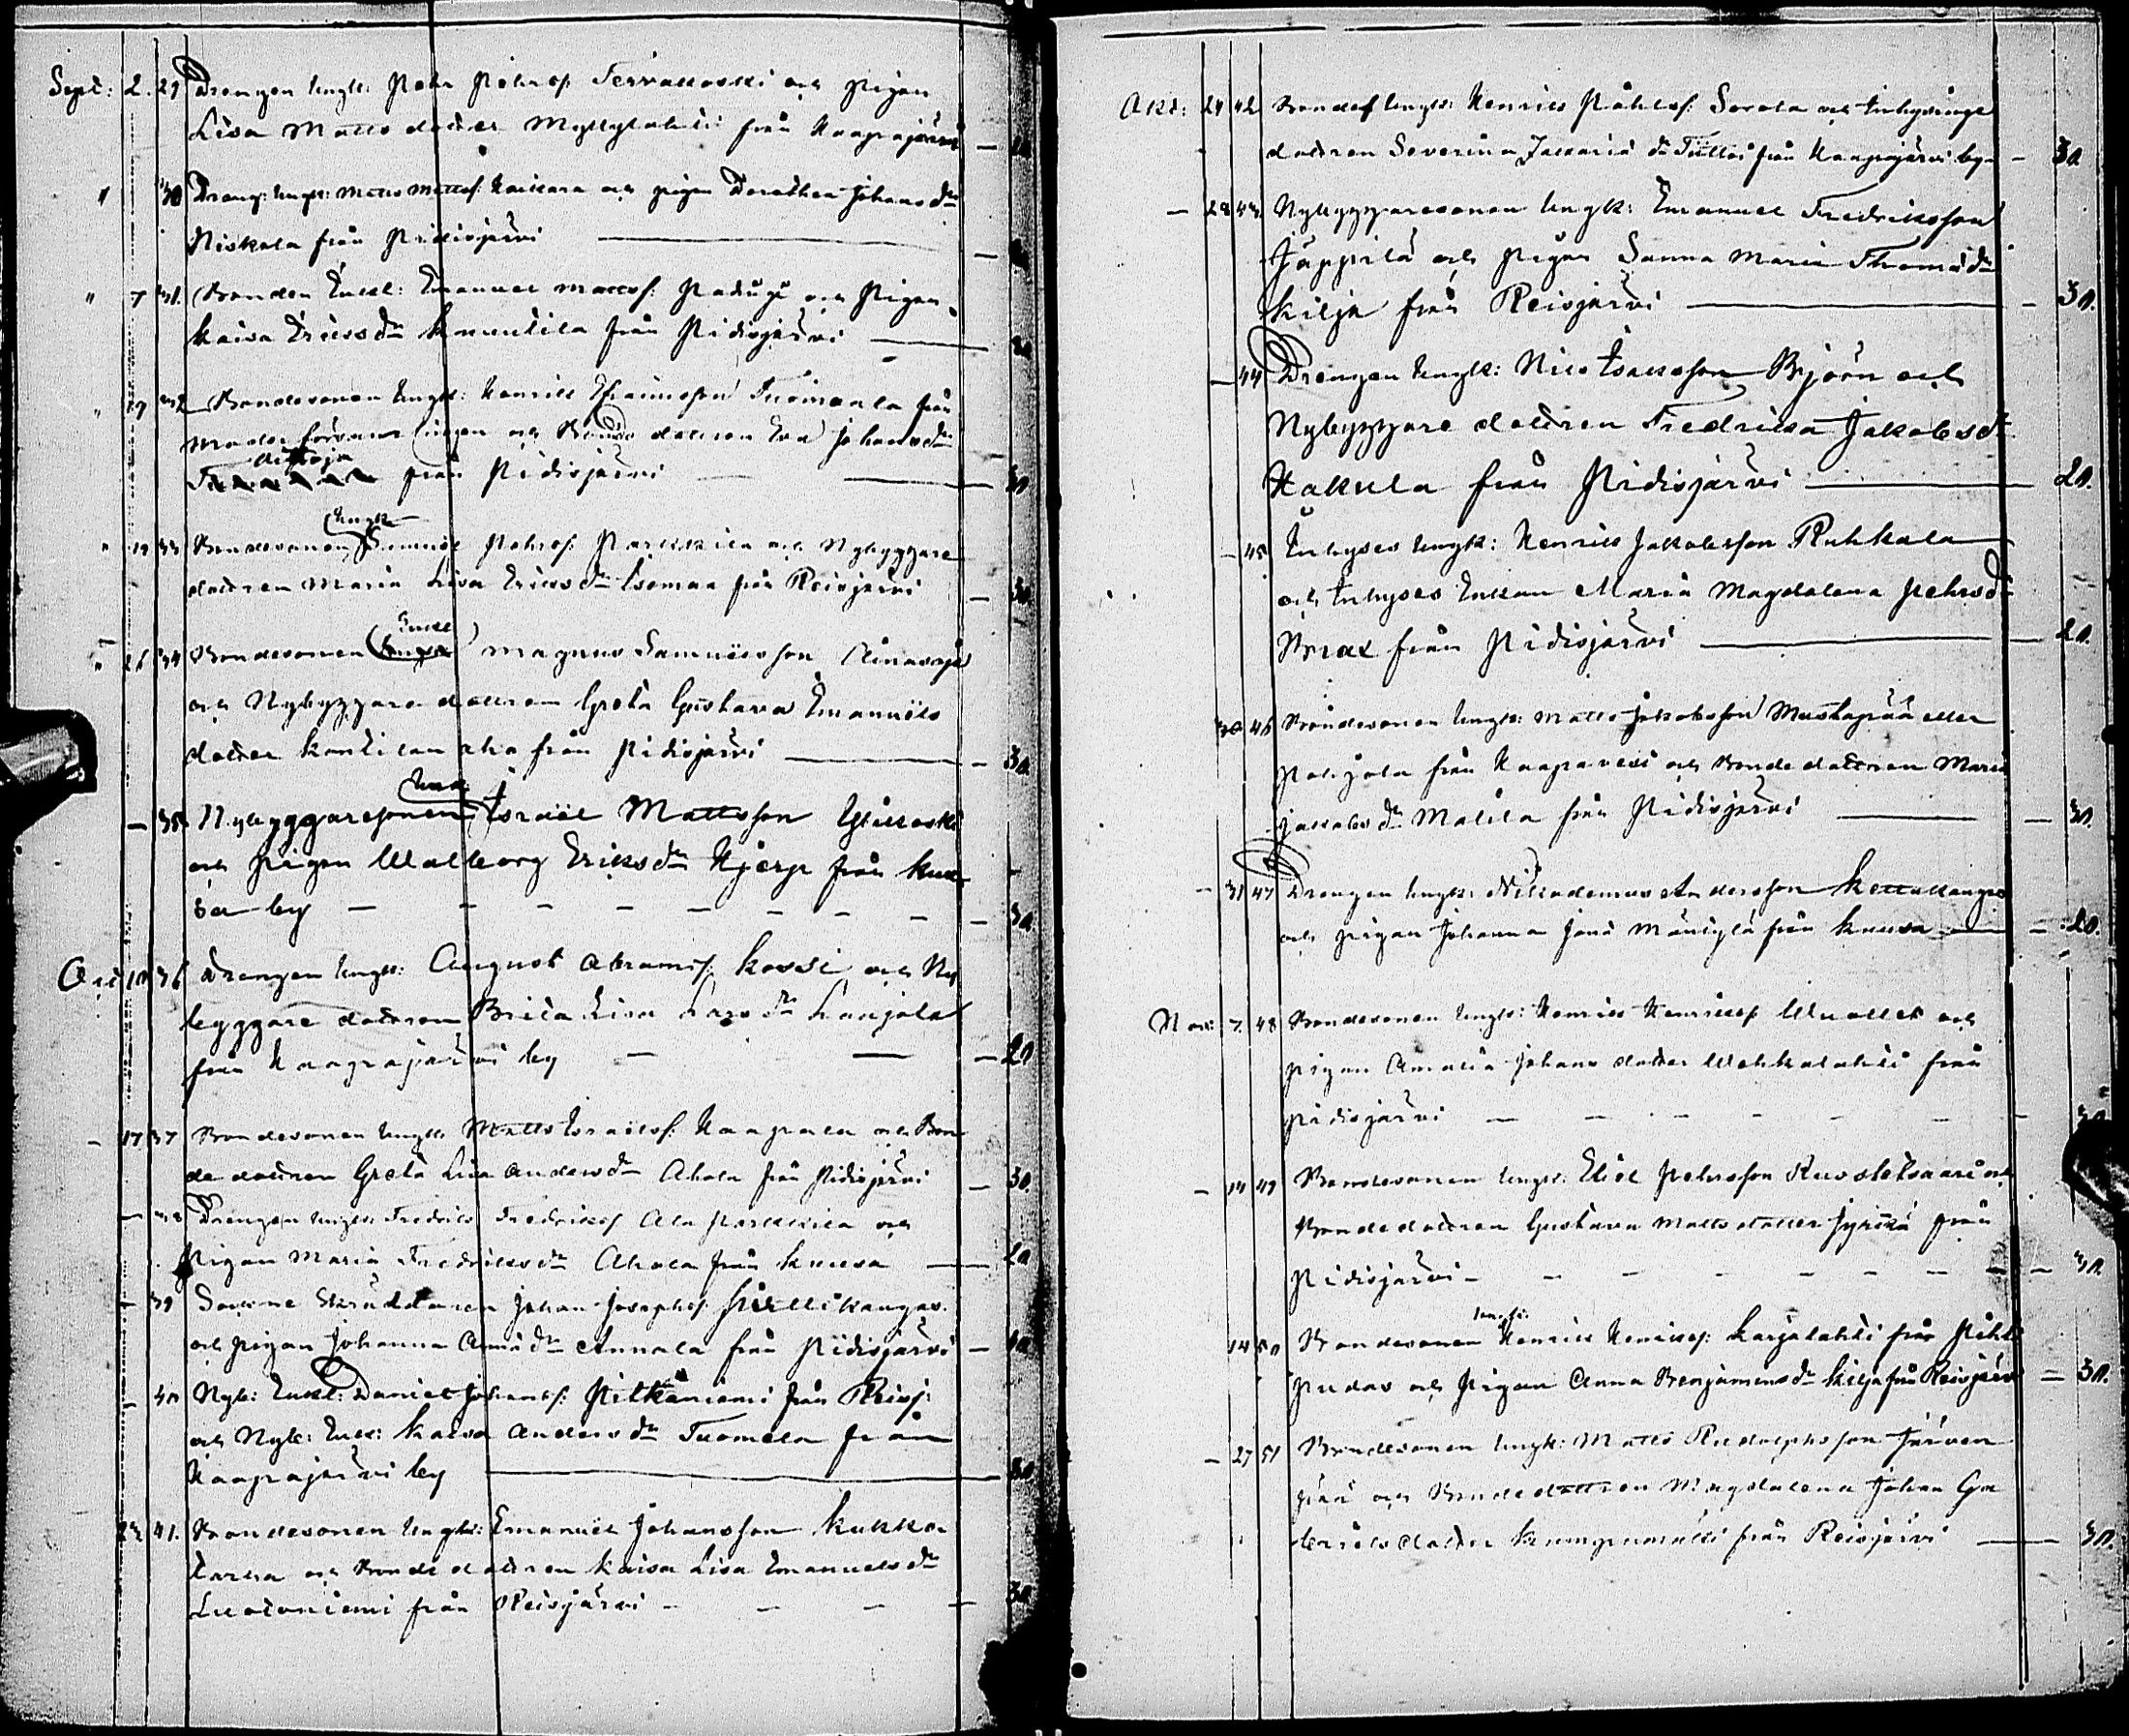 Sept: 2. 29 Drengen Ungk: Pehr Pehrsf. Tervakoski och Pigan
Lisa Matts dotter Myllylahti från Haapajärvi —
" 30 Dräng: Ungk: Matts Mattsf: och pigan Dorothea Johans dr
Niskala från Pidisjärvi —
" 7 31. Bonden Enkl: Emanuel Mattsf: och Pigan
Kaisa Ericsdr Knuutila från Pidisjärvi — 20
" 19 32 Bondesonen Ungk: Henrik Tuomaala från
och Bonde dottren Eva Johansdr
från Pidisjärvi — 30
" 19 33 Bondesonen Ungk: Samuel Pehrsf. Parkkila och Nybyggare
dottren Maria Lisa Ericsdr Isomaa från Reisjärvi — 30
" 26 34 Bondesonen Enkl Magnus Samuelsson Ainasoja
och Nybyggare dottren Greta Gustava Emanuels
dotter Kantilan aho från Pidisjärvi — 30.
— 35 Nybyggaresonen Israel Mattsson
och pigan Walborg Eriksdr Hjerpe från Kuu
sa by — 30
Oct 10 36 Drengen Ungk: August Abramsf. Kossi och Ny
byggare dottren Brita Lisa Larsdr Laajala
från Haapajärvi by — 20
— 17 37 Bondesonen Ungk: Matts Israelsf: Haapala och Bon
de dottren Greta Lisa Andersdr Ahola från Pidisjärvi — 30.
— 38 Drengen Ungk: Fredrik Fredriksf Ala Parkkila och
Pigan Maria Fredriksdr Ahola från Kuusa — 20
— 39 Sockne Skräddaren Johan Josephsf.
och pigan Johanna dr Annala från Pidisjärvi —
— 40 Nyb: Enkl: Daniel Johansf. Pitkäniemi från Reisj:
och Nyb: Enk: Kaisa Andersdr Tuomela från
Haapajärvi by — 30
23 41. Bondesonen Ungk: Emanuel Johansson Kukko
och Bonde dottren Kaisa Lisa Emanuelsdr
Luotoniemi från Reisjärvi — 30
Okt: 24 42 Bondes Ungk: Henrik Påhlsf. Sorola och Inhysinge
dottren Severina Zakariä dr från Haapajärvi by — 30
— 28 43 Nybyggaresonen Ungk: Emanuel Fredriksson
Jäppilä och pigan Sanna Maria Thomädr
Kilja från Reisjärvi — 30.
— 44 Drengen Ungk: Nils Isaksson Björn och
Nybyggare dottren Fredrika Jakobsdr
Hakula från Pidisjärvi — 20.
— 45 Inhyses Ungk: Henrik Jakobsson Ruhkala
och Inhyses Enkan Maria Magdalena Pehrsdr
från Pidisjärvi — 20.
30 46 Bondesonen Ungk: Matts Jakobsson Mustapää eller
Pohjola från Haapavesi och Bonde dottren Maria
Jakobsdr Malila från Pidisjärvi — 30.
— 31 47 Drengen Ungk: Nikodemus Andersson
och pigan Johanna Jonä från Kuusa — 20.
Nov: 7. 48 Bondesonen Ungk: Henrik Henriksf. och
pigan Amalia Johans dotter Wehkalahti från
Pidisjärvi — 30
— 14 49 Bondesonen Ungk: Eliel Pehrsson och
Bonde dottren Gustava Matts dotter från
Pidisjärvi — 30.
14 50 Bondesonen Henrik Henriksf: Karjalahti från Pihti
pudas och Pigan Anna Benjaminsdr Kilja från Reisjärvi — 30.
— 27 51 Bondesonen Ungk: Matts Rudolphsson Järven
pää och Bonde dottren Magdalena Johan Ga
briels dotter från Reisjärvi — 30.